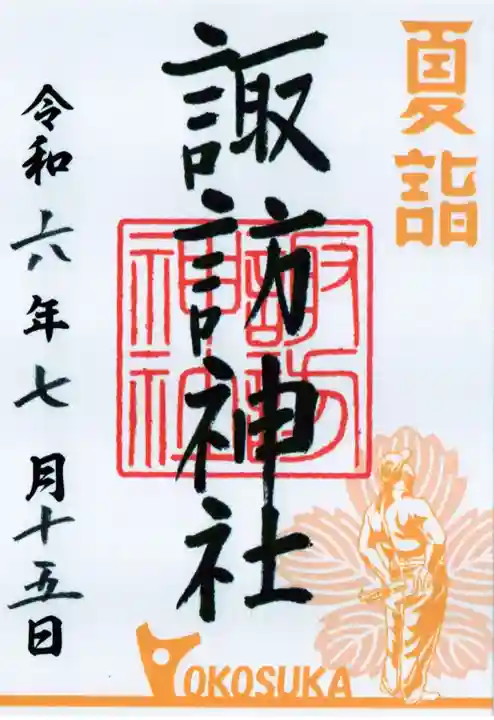 夏詣
諏訪神社
諏訪神社
令和六年七月十五日
YOKOSUKA